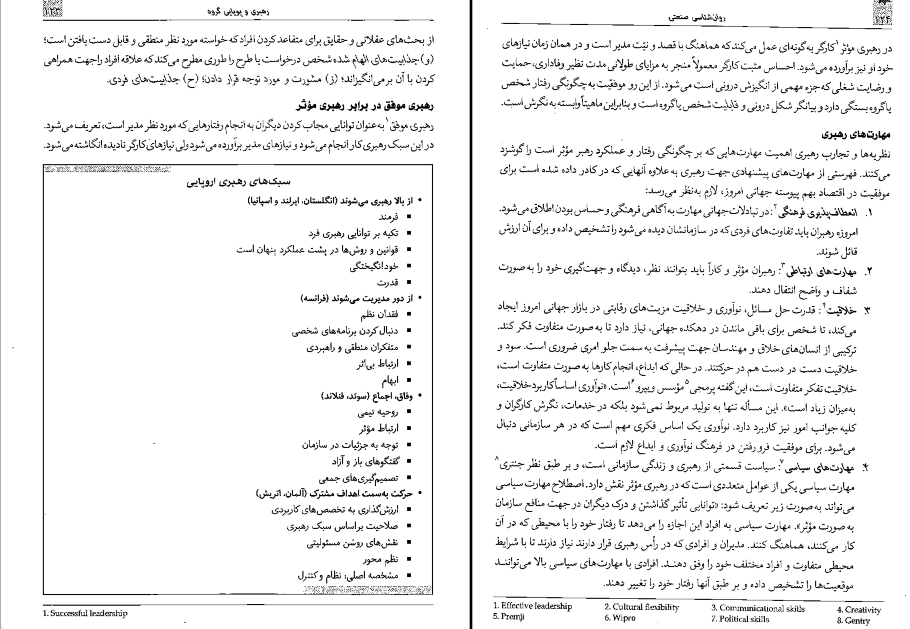 رهبری و پویایی گروه
۱۲۳
از بحث‌های عقلانی و حقایق برای متقاعد کردن افراد که خواسته مورد نظر منطقی و قابل دست یافتن است؛
(و) جذابیت‌های الهام شده شخص درخواست یا طرح را طوری مطرح می‌کند که علاقه افراد را جهت همراهی
کردن با آن برمی‌انگیزاند؛ (ز) مشورت و مورد توجه قرار دادن؛ (ح) جذابیت‌های فردی.
رهبری موفق در برابر رهبری مؤثر
رهبری موفق۱ به‌عنوان توانایی مجاب کردن دیگران به انجام رفتارهایی که مورد نظر مدیر است، تعریف می‌شود.
در این سبک رهبری کار انجام می‌شود و نیازهای مدیر برآورده می‌شود ولی نیازهای کارگر نادیده انگاشته می‌شود.
سبک‌های رهبری اروپایی
• از بالا رهبری می‌شوند (انگلستان، ایرلند و اسپانیا)
▪ فرمند
▪ تکیه بر توانایی رهبری فرد
▪ قوانین و روش‌ها در پشت عملکرد پنهان است
▪ خودانگیختگی
▪ قدرت
• از دور مدیریت می‌شوند (فرانسه)
▪ فقدان نظم
▪ دنبال کردن برنامه‌های شخصی
▪ متفکران منطقی و راهبردی
▪ ارتباط بی‌اثر
▪ ابهام
• وفاق، اجماع (سوئد، فنلاند)
▪ روحیه تیمی
▪ ارتباط مؤثر
▪ توجه به جزئیات در سازمان
▪ گفتگوهای باز و آزاد
▪ تصمیم‌گیری‌های جمعی
• حرکت به‌سمت اهداف مشترک (آلمان، اتریش)
▪ ارزش‌گذاری به تخصص‌های کاربردی
▪ صلاحیت براساس سبک رهبری
▪ نقش‌های روشن مسئولیتی
▪ نظم محور
▪ مشخصه اصلی: نظام و کنترل
1. Successful leadership
روان‌شناسی صنعتی
۱۲۴
در رهبری مؤثر۱ کارگر به‌گونه‌ای عمل می‌کند که هماهنگ با قصد و نیّت مدیر است و در همان زمان نیازهای
خود او نیز برآورده می‌شود. احساس مثبت کارگر معمولاً منجر به مزایای طولانی مدت نظیر وفاداری، حمایت
و رضایت شغلی که جزء مهمی از انگیزش درونی است می‌شود. از این رو موفقیت به چگونگی رفتار شخص
یا گروه بستگی دارد و بیانگر شکل درونی و قابلیت شخص یا گروه است و بنابراین ماهیتاً وابسته به نگرش است.
مهارت‌های رهبری
نظریه‌ها و تجارب رهبری اهمیت مهارت‌هایی که بر چگونگی رفتار و عملکرد رهبر مؤثر است را گوشزد
می‌کنند. فهرستی از مهارت‌های پیشنهادی جهت رهبری به‌علاوه آنهایی که در کادر داده شده است برای
موفقیت در اقتصاد بهم پیوسته جهانی امروز، لازم به‌نظر می‌رسد:
۱. انعطاف‌پذیری فرهنگی۲: در تبادلات جهانی مهارت به آگاهی فرهنگی و حساس بودن اطلاق می‌شود.
امروزه رهبران باید تفاوت‌های فردی که در سازمانشان دیده می‌شود را تشخیص داده و برای آن ارزش
قائل شوند.
۲. مهارت‌های ارتباطی۳: رهبران مؤثر و کارآ باید بتوانند نظر، دیدگاه و جهت‌گیری خود را به‌صورت
شفاف و واضح انتقال دهند.
۳. خلاقیت۴: قدرت حل مسائل، نوآوری و خلاقیت مزیت‌های رقابتی در بازار جهانی امروز ایجاد
می‌کند، تا شخص برای باقی ماندن در دهکده جهانی، نیاز دارد تا به صورت متفاوت فکر کند.
ترکیبی از انسان‌های خلاق و مهندسان جهت پیشرفت به سمت جلو امری ضروری است. سود و
خلاقیت دست در دست هم در حرکتند. در حالی که ابداع، انجام کارها به صورت متفاوت است،
خلاقیت تفکر متفاوت است، این گفته پرمجی۵ مؤسس ویپرو۶ است. «نوآوری اساساً کاربرد خلاقیت،
به‌میزان زیاد است». این مسأله تنها به تولید مربوط نمی‌شود بلکه در خدمات، نگرش کارگران و
کلیه جوانب امور نیز کاربرد دارد. نوآوری یک اساس فکری مهم است که در هر سازمانی دنبال
می‌شود. برای موفقیت فرو رفتن در فرهنگ نوآوری و ابداع لازم است.
۴. مهارت‌های سیاسی۷: سیاست قسمتی از رهبری و زندگی سازمانی است، و بر طبق نظر جنتری۸
مهارت سیاسی یکی از عوامل متعددی است که در رهبری مؤثر نقش دارد. اصطلاح مهارت سیاسی
می‌تواند به صورت زیر تعریف شود: «توانایی تأثیر گذاشتن و درک دیگران در جهت منافع سازمان
به صورت مؤثر». مهارت سیاسی به افراد این اجازه را می‌دهد تا رفتار خود را با محیطی که در آن
کار می‌کنند، هماهنگ کنند. مدیران و افرادی که در رأس رهبری قرار دارند نیاز دارند تا با شرایط
محیطی متفاوت و افراد مختلف خود را وفق دهند. افرادی با مهارت‌های سیاسی بالا می‌توانند
موقعیت‌ها را تشخیص داده و بر طبق آنها رفتار خود را تغییر دهند.
1. Effective leadership 2. Cultural flexibility 3. Communicational skills 4. Creativity
5. Premji 6. Wipro 7. Political skills 8. Gentry